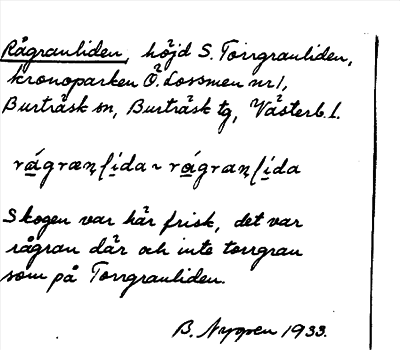 Rågranliden, höjd S. Torrgranliden,
kronoparken Ö. Lossmen nr 1,
Burträsk sn, Burträsk tg, Västerb. l.
Skogen var här frisk, det var
rågran där och inte torrgran
som på Torrgranliden.
B. Nygren 1933.